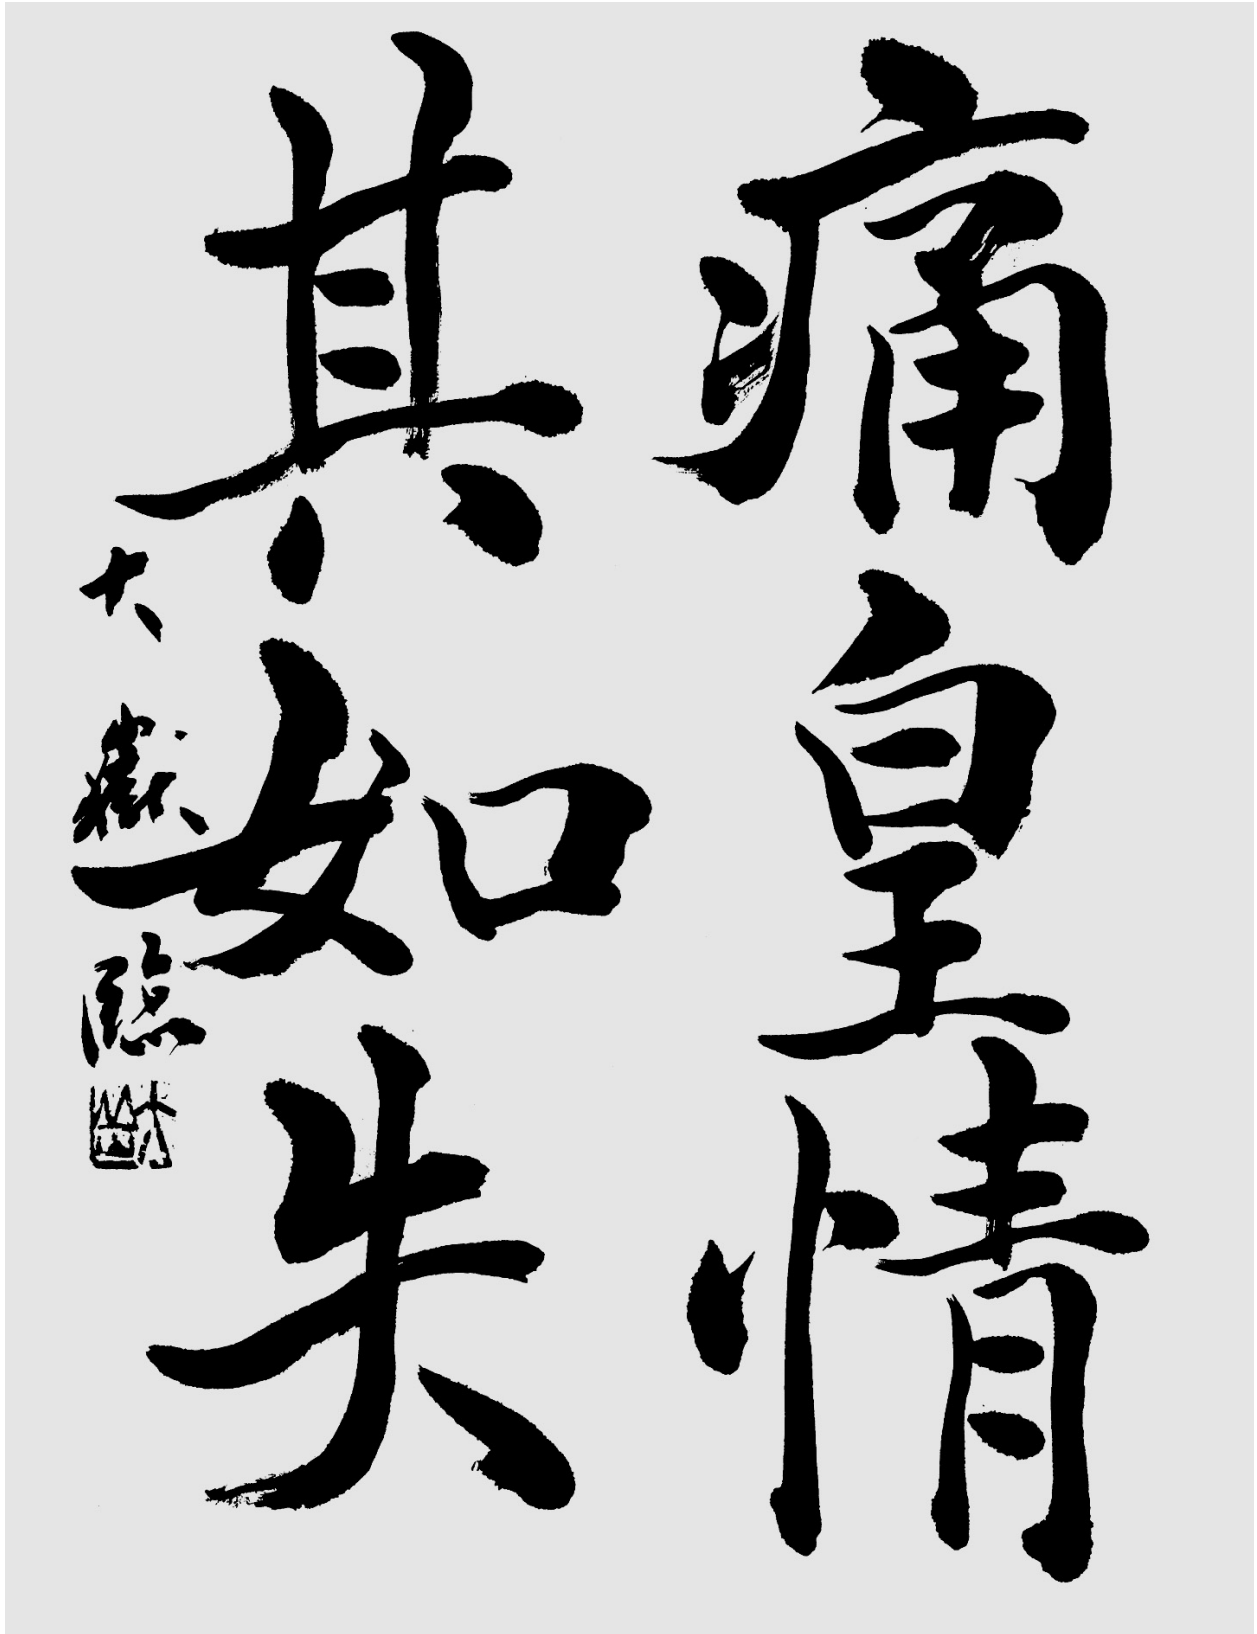 痛皇情
其如失
大嶽臨